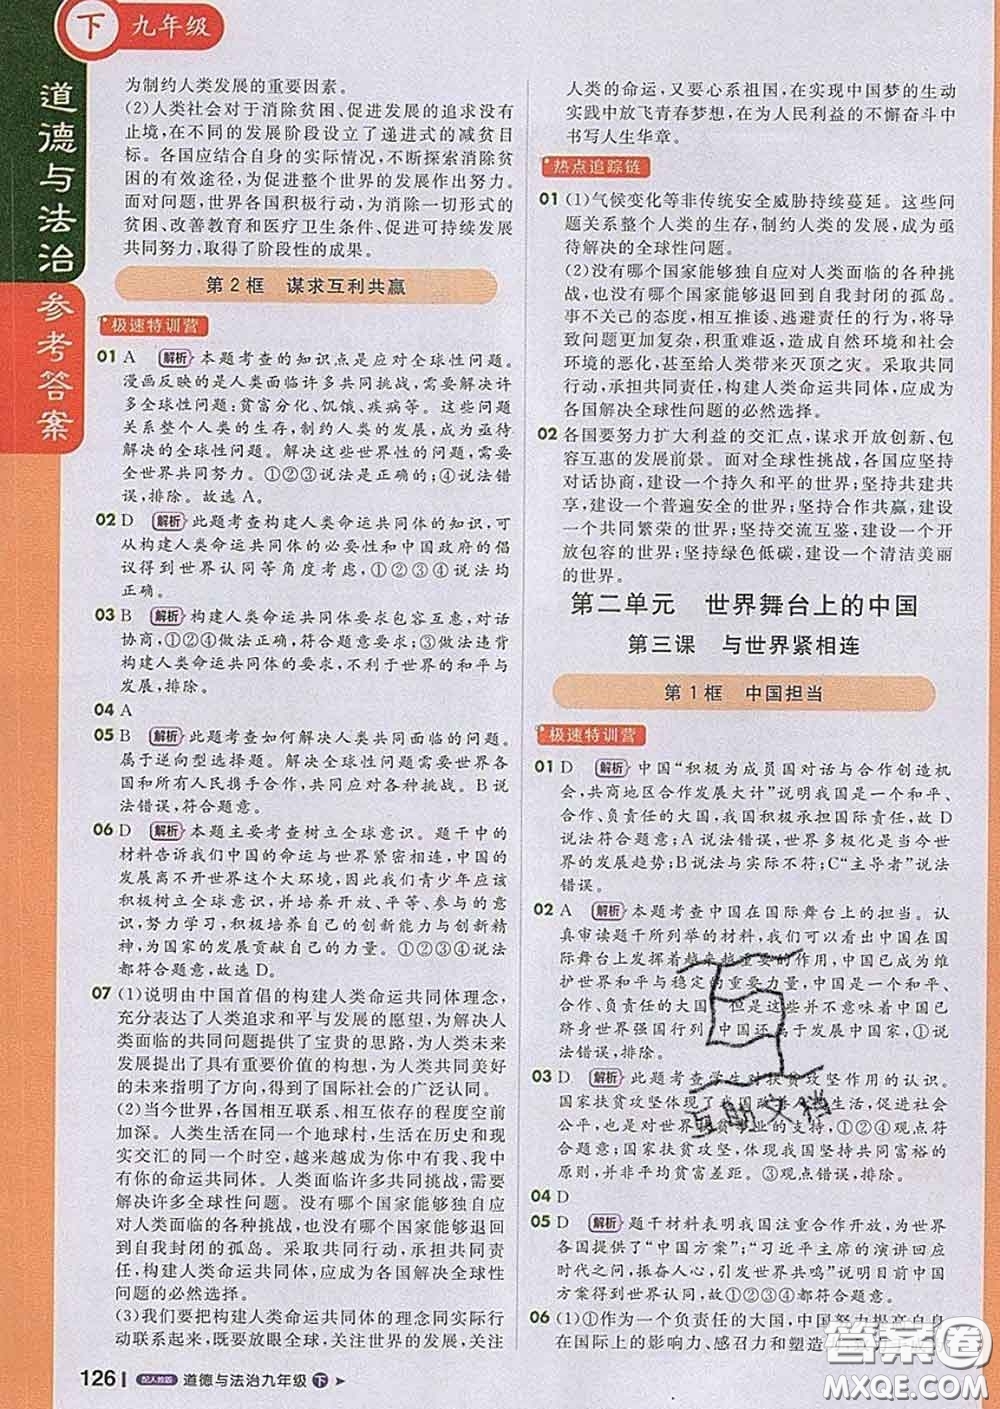 下 九年级
道德与法治
参考答案
为制约人类发展的重要因素。
(2)人类社会对于消除贫困、促进发展的追求没有
止境,在不同的发展阶段设立了递进式的减贫目
标。各国应结合自身的实际情况,不断探索消除贫
困的有效途径,为促进整个世界的发展作出努力。
面对问题,世界各国积极行动,为消除一切形式的
贫困、改善教育和医疗卫生条件、促进可持续发展
共同努力,取得了阶段性的成果。
第2框 谋求互利共赢
极速特训营
01 A 解析 本题考查的知识点是应对全球性问题。
漫画反映的是人类面临许多共同挑战,需要解决许
多全球性问题:贫富分化、饥饿、疾病等。这些问题
关系整个人类的生存,制约人类的发展,成为亟待
解决的全球性问题。解决这些世界性的问题,需要
全世界共同努力。①②③说法是正确的;④说法错
误,排除。故选A。
02 D 解析 此题考查构建人类命运共同体的知识,可
从构建人类命运共同体的必要性和中国政府的倡
议得到世界认同等角度考虑,①②③④说法均
正确。
03 B 解析 构建人类命运共同体要求包容互惠,对话
协商,①②④做法正确,符合题意要求;③做法违背
构建人类命运共同体的要求,不利于世界的和平与
发展,排除。
04 A
05 B 解析 此题考查如何解决人类共同面临的问题。
属于逆向型选择题。解决全球性问题,需要世界各
国和所有人民携手合作,共同应对共同挑战。B说
法错误,符合题意。
06 D 解析 本题主要考查树立全球意识。题干中的
材料告诉我们中国的命运与世界紧密相连,中国的
发展离不开世界这个大环境,因此我们青少年应该
积极树立全球意识,并培养开放、平等、参与的意
识,努力学习,积极培养自己的创新能力与创新精
神,为国家的发展贡献自己的力量。①②③④说法
都符合题意,故选D。
07 (1)说明由中国首倡的构建人类命运共同体理念,
充分表达了人类追求和平与发展的愿望,为解决人
类面临的共同问题提供了宝贵的思路,为人类未来
发展提出了具有重要价值的构想,为人类共同美好
的未来指明了方向,得到了国际社会的广泛认同。
(2)当今世界,各国相互联系、相互依存的程度空前
加深。人类生活在同一个地球村,生活在历史和现
实交汇的同一个时空,越来越成为你中有我、我中
有你的命运共同体。人类面临许多共同挑战,需要
解决许多全球性问题。没有哪个国家能够独自应
对人类面临的各种挑战,也没有哪个国家能够退回
到自我封闭的孤岛。采取共同行动,承担共同责
任,构建人类命运共同体,应成为各国解决全球性
问题的必然选择。
(3)我们要把构建人类命运共同体的理念同实际行
动联系起来,既要放眼全球,关注世界的发展,关注
人类的命运,又要心系祖国,在实现中国梦的生动
实践中放飞青春梦想,在为人民利益的不懈奋斗中
书写人生华章。
热点追踪链
01 (1)气候变化等非传统安全威胁持续蔓延。这些问
题关系整个人类的生存,制约人类的发展,成为亟
待解决的全球性问题。
(2)没有哪个国家能够独自应对人类面临的各种挑
战,也没有哪个国家能够退回到自我封闭的孤岛。
事不关己的态度,相互推诿、逃避责任的行为,将导
致问题更加复杂,积重难返,造成自然环境和社会
环境的恶化,甚至给人类带来灭顶之灾。采取共同
行动,承担共同责任,构建人类命运共同体,应成为
各国解决全球性问题的必然选择。
02 各国要努力扩大利益的交汇点,谋求开放创新、包
容互惠的发展前景。面对全球性挑战,各国应坚持
对话协商,建设一个持久和平的世界;坚持共建共
享,建设一个普遍安全的世界;坚持合作共赢,建设
一个共同繁荣的世界;坚持交流互鉴,建设一个开
放包容的世界;坚持绿色低碳,建设一个清洁美丽
的世界。
第二单元 世界舞台上的中国
第三课 与世界紧相连
第1框 中国担当
极速特训营
01 D 解析 中国“积极为成员国对话与合作创造机
会,共商地区合作发展大计”说明我国是一个和平、
合作、负责任的大国,我国积极承担国际责任,故D
说法符合题意;A说法错误,世界多极化是当今世
界的发展趋势;B说法与实际不符;C“主导者”说法
错误。
02 A 解析 本题考查中国在国际舞台上的担当。认
真审读题干所列举的材料,我们可以看出中国在国
际舞台上发挥着越来越重要的作用,中国已成为维
护世界和平与稳定的重要力量,中国是一个和平、
合作、负责任的大国,但是这些并不意味着中国已
跻身世界强国行列,中国还属于发展中国家,①说
法错误,排除。
03 D 解析 此题考查学生对扶贫攻坚作用的认识。
国家扶贫攻坚体现了我国改善人民生活,促进社会
公平,也是对世界减贫事业的支持,①②④观点符
合题意;国家扶贫攻坚,体现我国坚持共同富裕的
原则,并非平均贫富差距。③观点错误,排除。
04 D
05 D 解析 题干材料表明我国注重合作开放,为世界
各国提供了“中国方案”;“习近平主席的演讲回应
时代之问,振奋人心,引发世界共鸣”说明目前中国
方案得到世界认同,故①②③④符合题意。
06 (1)①作为一个负责任的大国,中国努力提高自身
在国际上的影响力、感召力和塑造
互助文档
答案圈
MXQE.COM
126 配人教版 道德与法治九年级 下